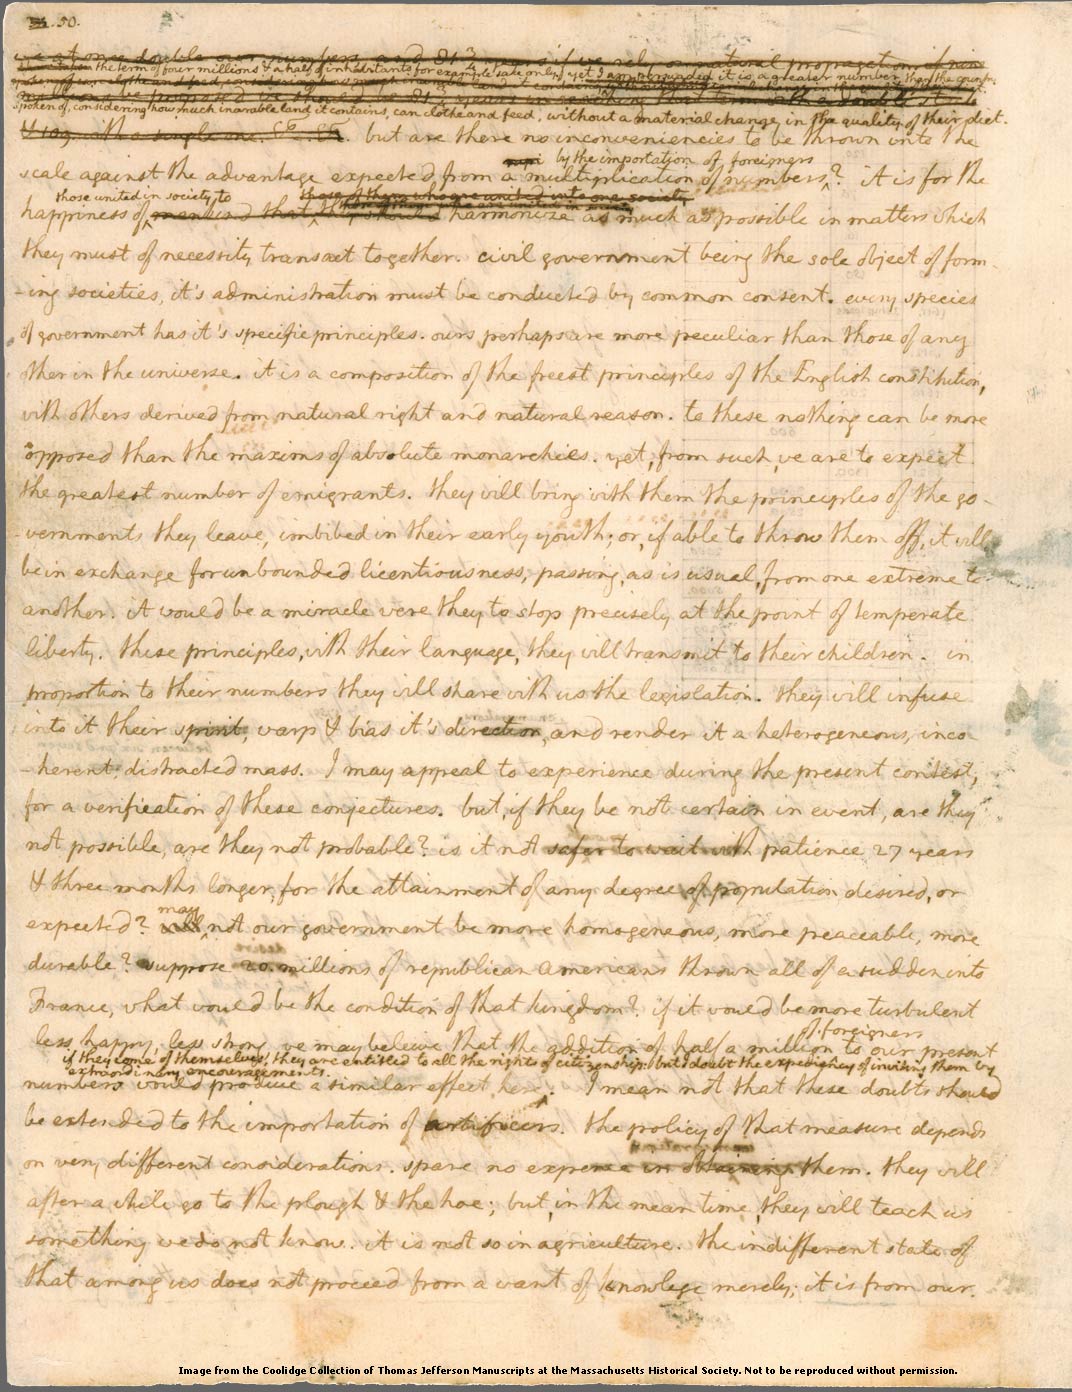 50.
we at once double our numbers and 81 3/4 years if we rely on natural propagation.
the term of four millions & a half of inhabitants for example's sake only, yet I am persuaded it is a greater number, than the country
spoken of, considering how much inarable land it contains, can clothe and feed, without a material change in the quality of their diet.
with a single one. but are there no inconveniencies to be thrown into the
by the importation of foreigners
scale against the advantage expected from a multiplication of numbers? it is for the
those united in society to
happiness of mankind that they should harmonize as much as possible in matters which
they must of necessity transact together. civil government being the sole object of form-
-ing societies, it's administration must be conducted by common consent. every species
of government has it's specific principles. ours perhaps are more peculiar than those of any
other in the universe. it is a composition of the freest principles of the English constitution,
with others derived from natural right and natural reason. to these nothing can be more
opposed than the maxims of absolute monarchies. yet, from such, we are to expect
the greatest number of emigrants. they will bring with them the principles of the go-
-vernments they leave, imbibed in their early youth; or, if able to throw them off, it will
be in exchange for unbounded licentiousness, passing, as is usual, from one extreme to
another. it would be a miracle were they to stop precisely at the point of temperate
liberty. these principles, with their language, they will transmit to their children. in
proportion to their numbers they will share with us the legislation. they will infuse
into it their spirit, warp & bias it's direction, and render it a heterogeneous, inco-
-herent, distracted mass. I may appeal to experience during the present contest,
for a verification of these conjectures. but, if they be not certain in event, are they
not possible, are they not probable? is it not safer to wait with patience 27 years
& three months longer, for the attainment of any degree of population desired, or
may
expected? will not our government be more homogeneous, more peaceable, more
durable? suppose 20. millions of republican Americans thrown all of a sudden into
France, what would be the condition of that kingdom? if it would be more turbulent
of foreigners
less happy, less strong, we may believe that the addition of half a million to our present
if they come of themselves, they are entitled to all the rights of citizenship: but I doubt the expediency of inviting them by
extraordinary encouragements.
numbers would produce a similar effect here. I mean not that these doubts should
be extended to the importation of artificers. the policy of that measure depends
on very different considerations. spare no expence in obtaining them. they will
after a while go to the plough & the hoe; but, in the mean time, they will teach us
something we do not know. it is not so in agriculture. the indifferent state of
that among us does not proceed from a want of knowlege merely; it is from our
Image from the Coolidge Collection of Thomas Jefferson Manuscripts at the Massachusetts Historical Society. Not to be reproduced without permission.